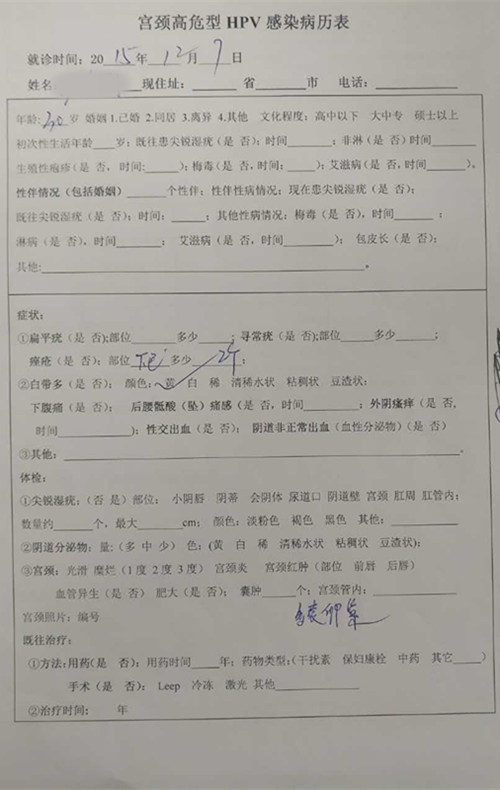 宫颈高危型 HPV 感染病历表
就诊时间：2015年12月7日
姓名 现住址：______ 省______市 电话：__________
年龄:30岁 婚姻 1.已婚 2.同居 3.离异 4.其他 文化程度：高中以下 大中专 硕士以上
初次性生活年龄___岁；既往患尖锐湿疣（是 否）；时间______；非淋（是 否)时间______
生殖性疱疹（是 否，时间:_____)；梅毒（是 否，时间：____)；艾滋病（是 否，时间______)。
性伴情况（包括婚姻）______个性伴；性伴性病情况：现在患尖锐湿疣（是 否）；
既往尖锐湿疣（是 否）；时间：_____；其他性病情况：梅毒（是 否)，时间______；
淋病（是 否)，时间______；艾滋病（是 否)，时间_______)；包皮长（是 否）；
其他:________________________________________。
症状：
①扁平疣（是 否);部位______多少_____；寻常疣（是 否);部位_____多少_____；
痤疮（是 否）；部位 多少 2个；
②白带多（是 否）； 颜色：黄 白 稀 清稀水状 粘稠状 豆渣状；
下腹痛（是 否）； 后腰骶酸（坠）痛感（是 否，时间________）；外阴瘙痒（是 否，
时间__________)；性交出血（是 否）；阴道非正常出血（血性分泌物）（是 否）
③其他：________________________________________。
体检：
①尖锐湿疣：（否 是）部位： 小阴唇 阴蒂 会阴体 尿道口 阴道壁 宫颈 肛周 肛管内；
数量约_____个，最大______cm； 颜色：淡粉色 褐色 黑色 其他：________
②阴道分泌物：量：（多 中 少） 色：(黄 白 稀 清稀水状 粘稠状 豆渣状)；
③宫颈：光滑 糜烂（1度 2度 3度） 宫颈炎 宫颈红肿（部位 前唇 后唇）
血管异生（是 否） 肥大（是 否）； 囊肿_____个；宫颈管内：__________
宫颈照片：编号
既往治疗：
①方法：用药（是 否）：用药时间____年；药物类型：（干扰素 保妇康栓 中药 其它____）
手术（是 否）： Leep 冷冻 激光 其他__________
②治疗时间： 年